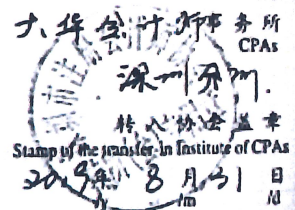 大华会计师事务所
CPAs
深圳分所.
转入协会盖章
Stamp of the transfer-in Institute of CPAs
2019年 8 月 31 日
/y /m /d